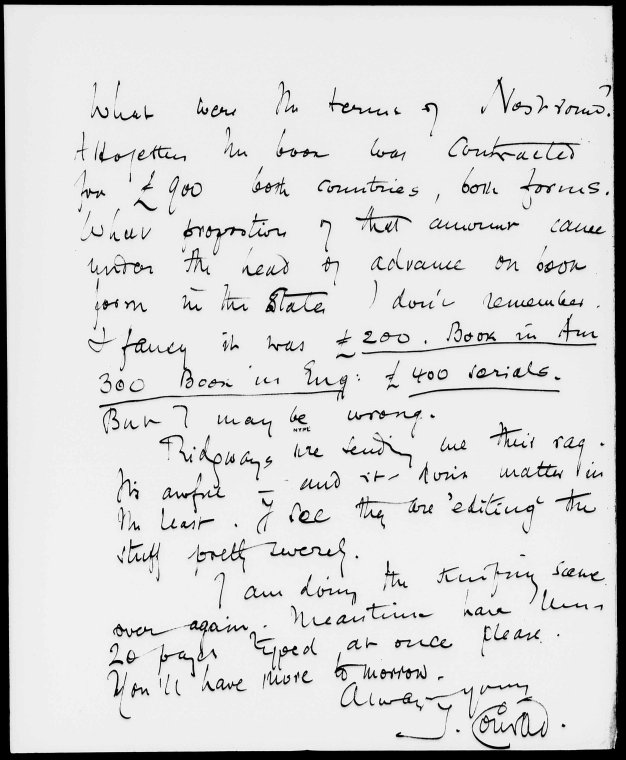 What were the terms of Nostromo?
Altogether the book was contracted
for £900 both countries, both forms.
What proportion of that amount came
under the head of advance on book
form in the States I don't remember.
I fancy it was £200. Book in Am
300 Book in Eng: £400 serials.
But I may be wrong.
NYPL
Ridgways are sending me their rag.
It's awful – and it don't matter in
the least. I see they are 'editing' the
stuff pretty severely.
I am doing the knifing scene
over again. Meantime have these
20 pages typed at once please.
You'll have more to morrow.
Always yours
J. Conrad.